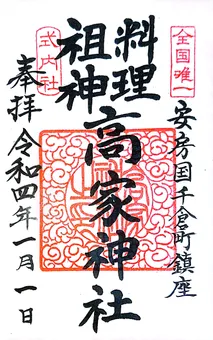 全国唯一
安房国千倉町鎮座
料理
祖神
高家神社
式内社
奉拝
令和四年一月一日